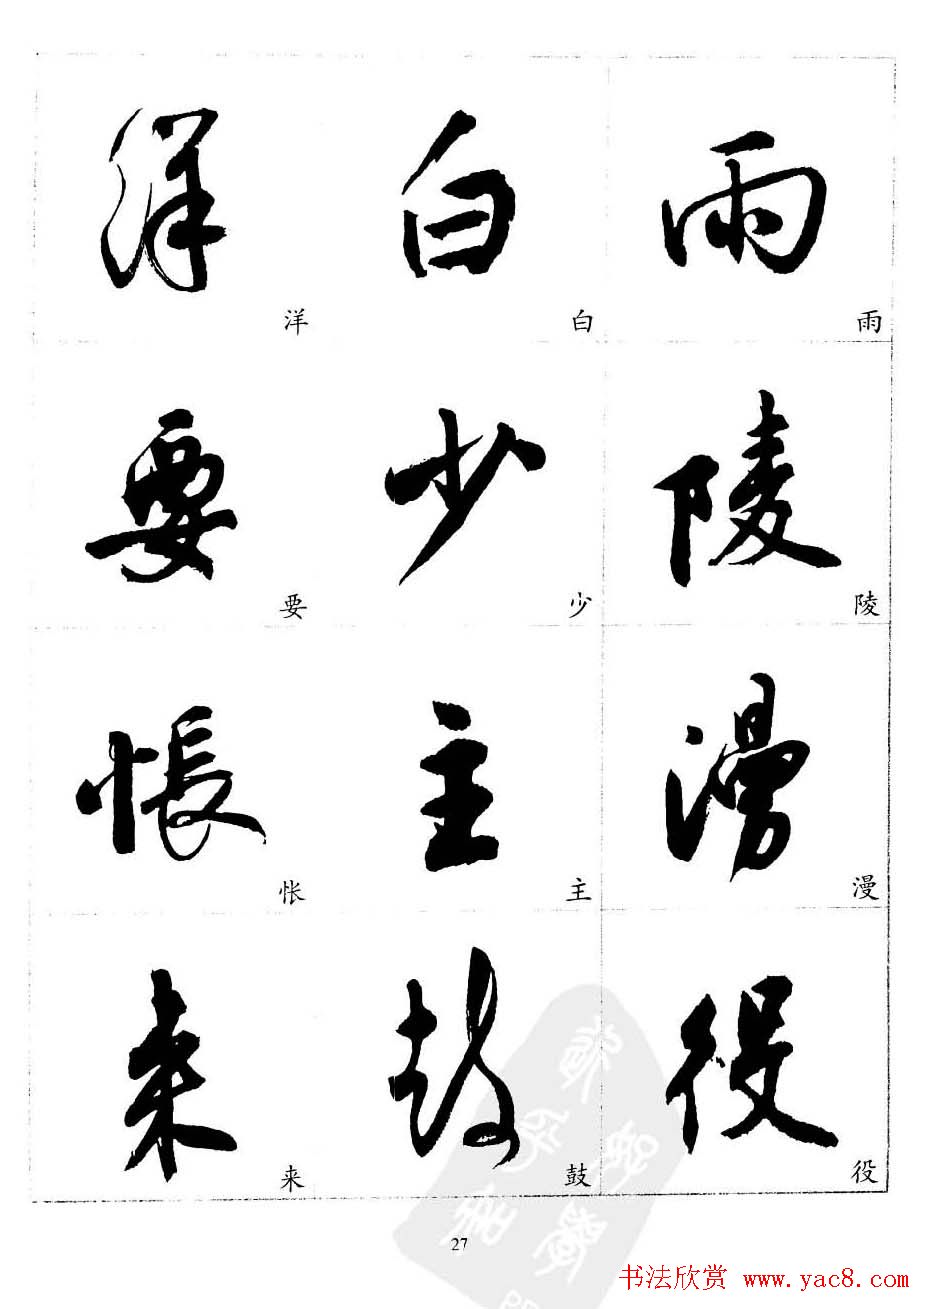 洋 白 雨
洋 白 雨
要 少 陵
要 少 陵
悵 主 漫
怅 主 漫
来 鼓 役
来 鼓 役
27
书法欣赏 www.yac8.com